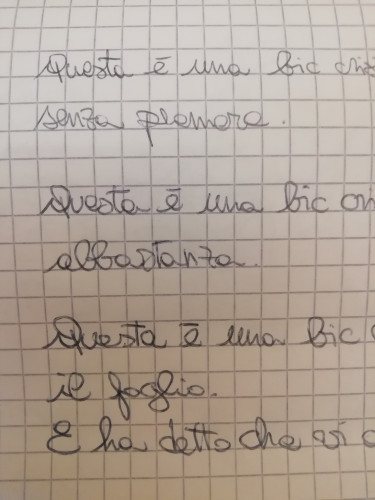 Questa è una bic
senza premere.
Questa è una bic
abbastanza.
Questa è una bic
il foglio.
E ha detto che si